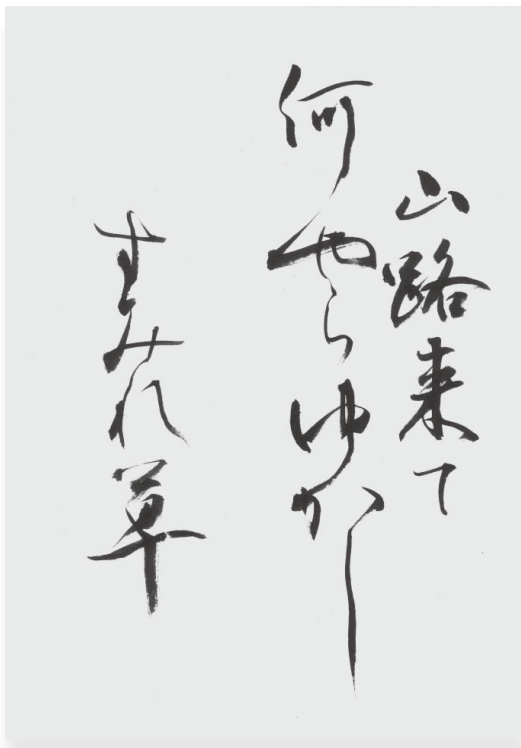 山路来て
何やらゆかし
すみれ草